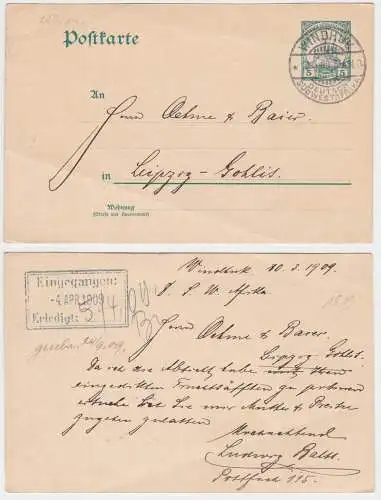 Postkarte
WINDHUK
5 5
DEUTSCH-
SÜDWESTAFRIKA
An
Herrn Oehme & Baier.
in Leipzig-Gohlis.
Wohnung
(Straße und Hausnummer)
Windhuk 10.3.1909.
Eingegangen:
-4 APR. 1909
Erledigt: 5/4
D. S. W. Afrika
Herrn Oehme & Baier
Leipzig Gohlis.
Da ich die Absicht habe
eingedickten Fruchtsäften zu
ersuche Sie mir Muster & Preise
zugehen zu lassen
Hochachtend
Ludwig
Postfach 115.